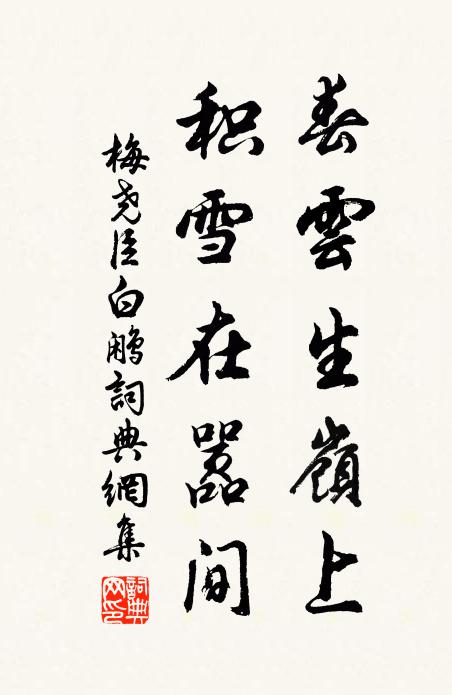 春雲生嶺上
积雪在嚣间
梅尧臣白鹇詞典網集
詞典网印